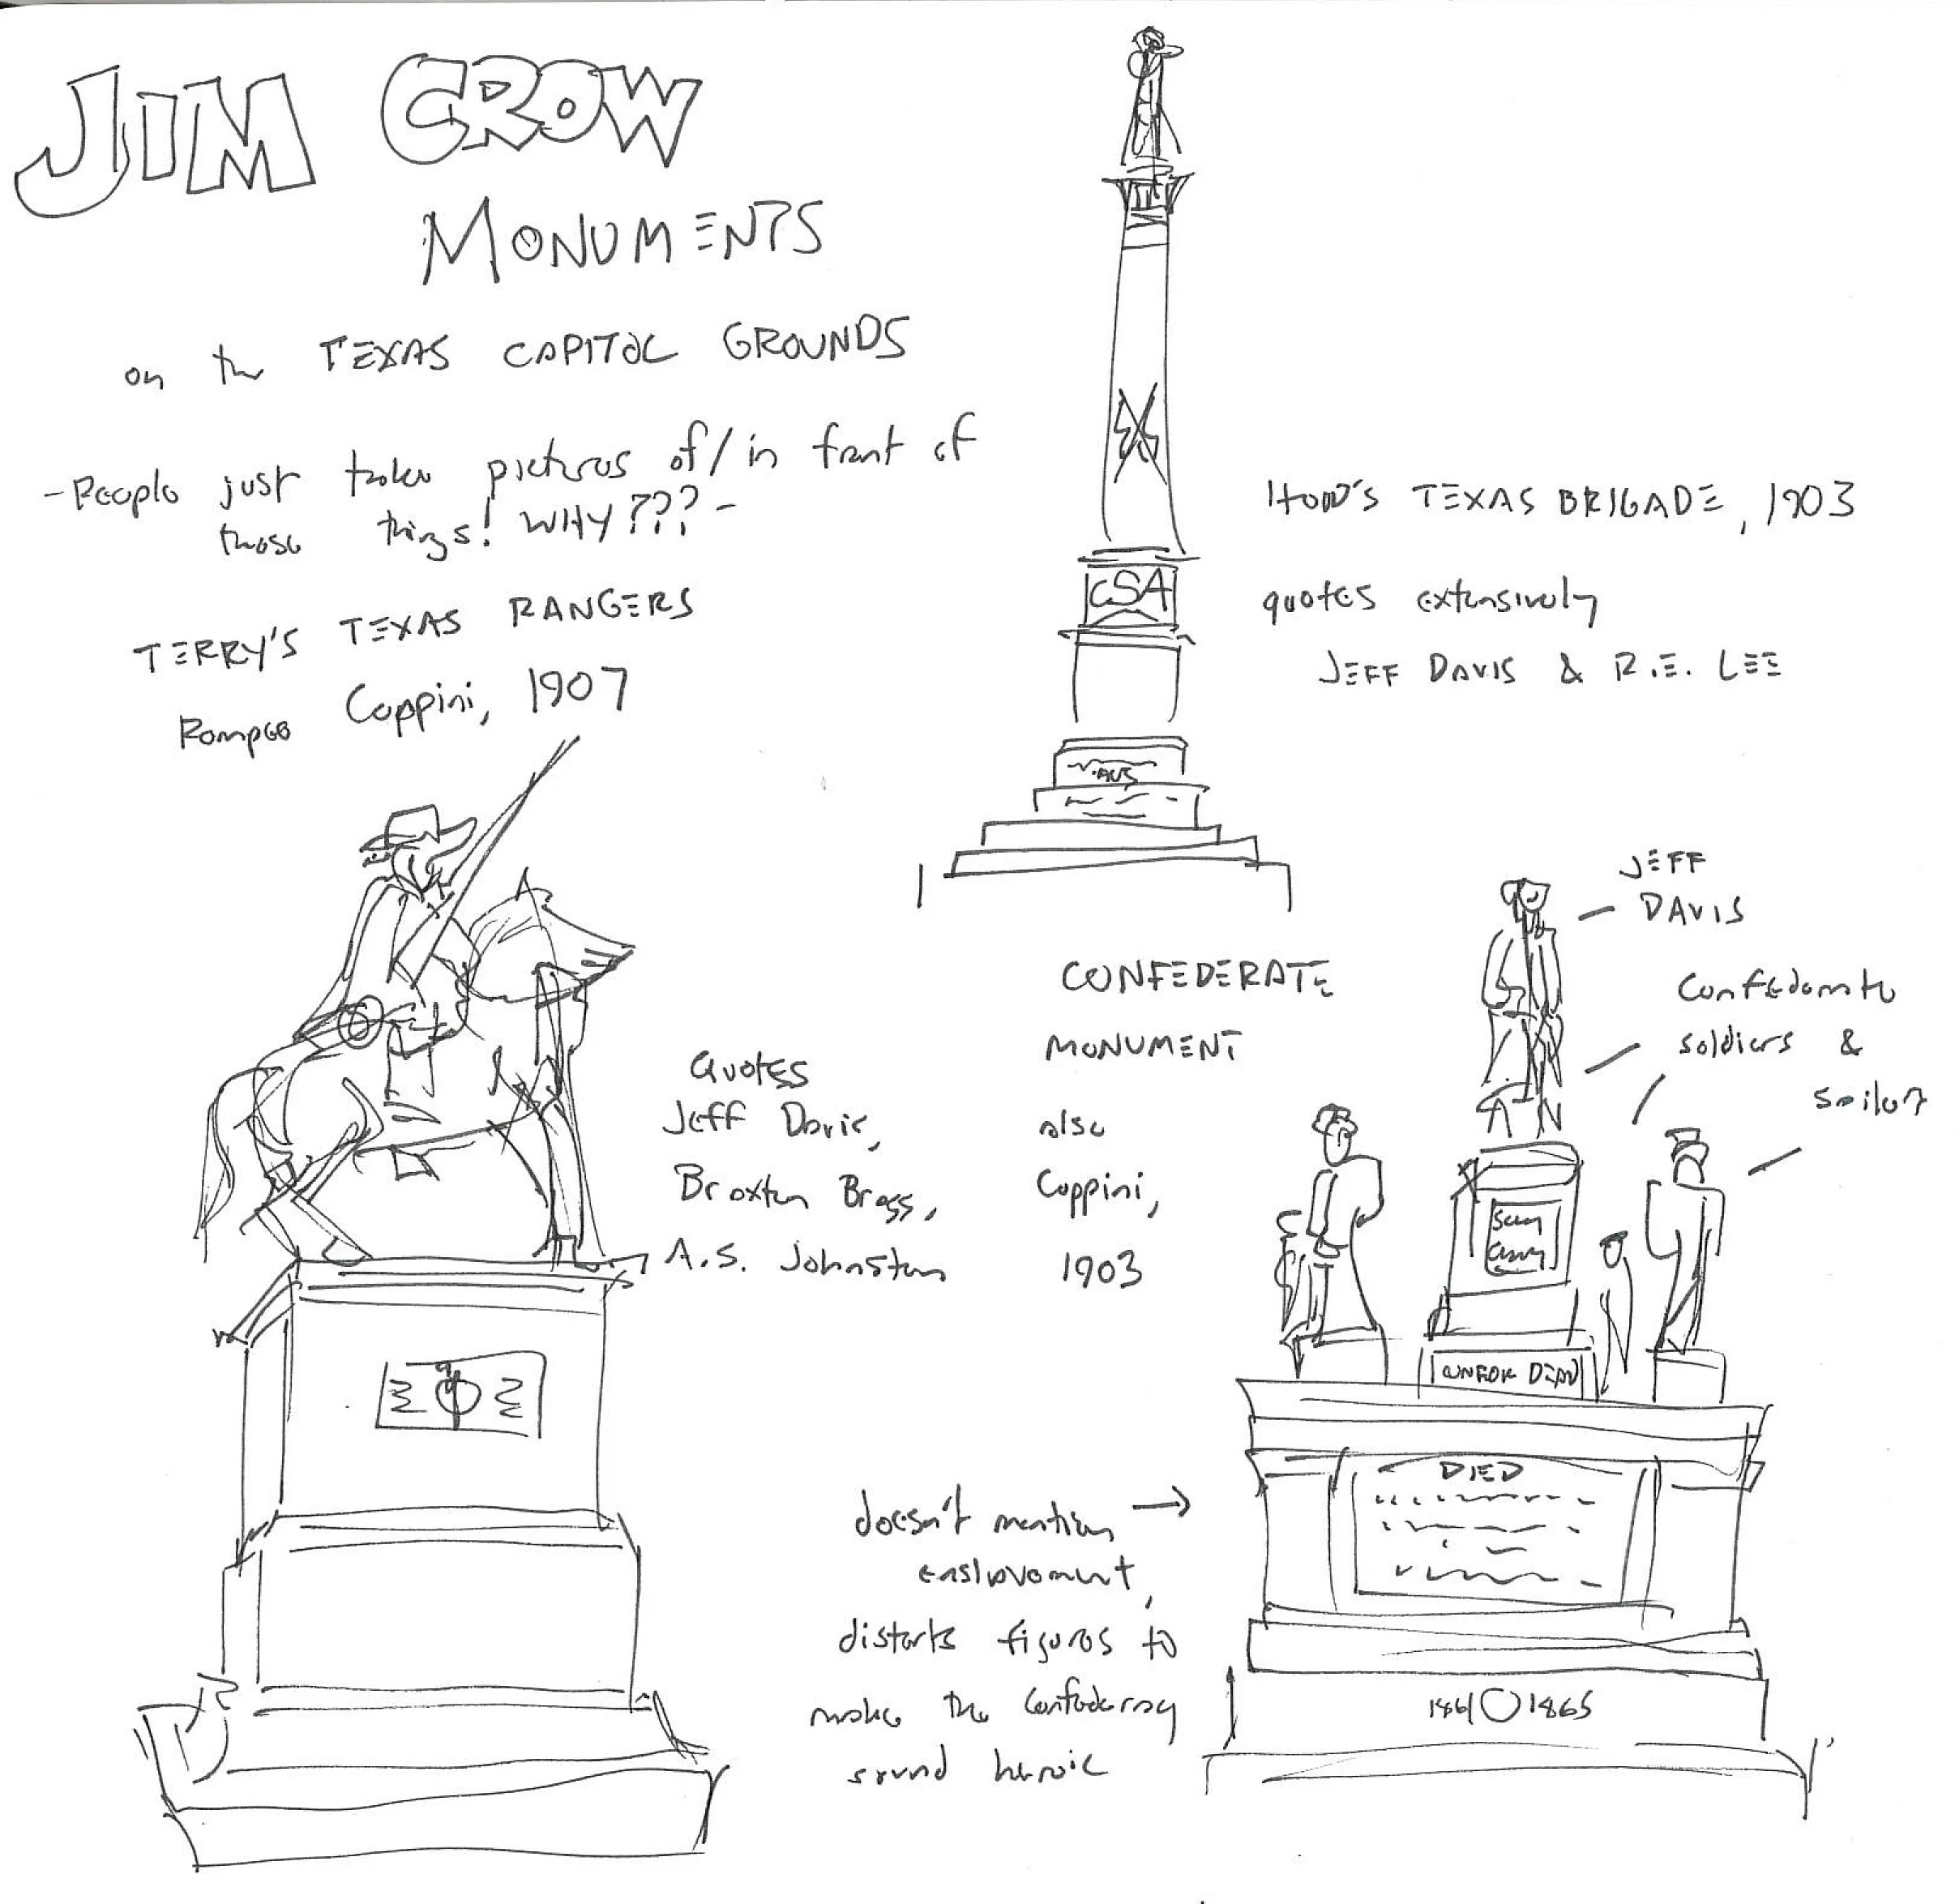 JIM CROW
MONUMENTS
on the TEXAS CAPITOL GROUNDS
- People just take pictures of/in front of
these things! WHY??? -
TERRY'S TEXAS RANGERS
Pompeo Coppini, 1907
CSA
HOOD'S TEXAS BRIGADE, 1903
quotes extensively
JEFF DAVIS & R.E. LEE
Quotes
Jeff Davis,
Braxton Bragg,
A.S. Johnston
CONFEDERATE
MONUMENT
also
Coppini,
1903
JEFF
DAVIS
Confederate
soldiers &
sailor
DIED
1861 1865
doesn't mention
enslavement,
distorts figures to
make the Confederacy
sound heroic